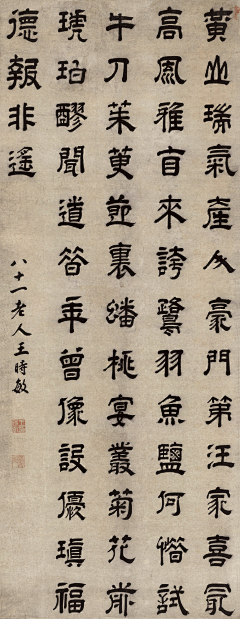 黃山瑞氣產人豪門第汪家喜最
高風雅旨來誇鷺羽魚鹽何惜試
牛刀茱萸節裏蟠桃宴叢菊花前
琥珀醪聞道荅年曾像設優瑱福
德報非遙
八十一老人王時敏